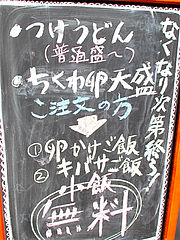 ・つけうどん
(普通盛〜)
・ちくわ卵大盛
ご注文の方
①卵かけご飯
②キバサご飯
小飯
無料
なくなり次第終了!